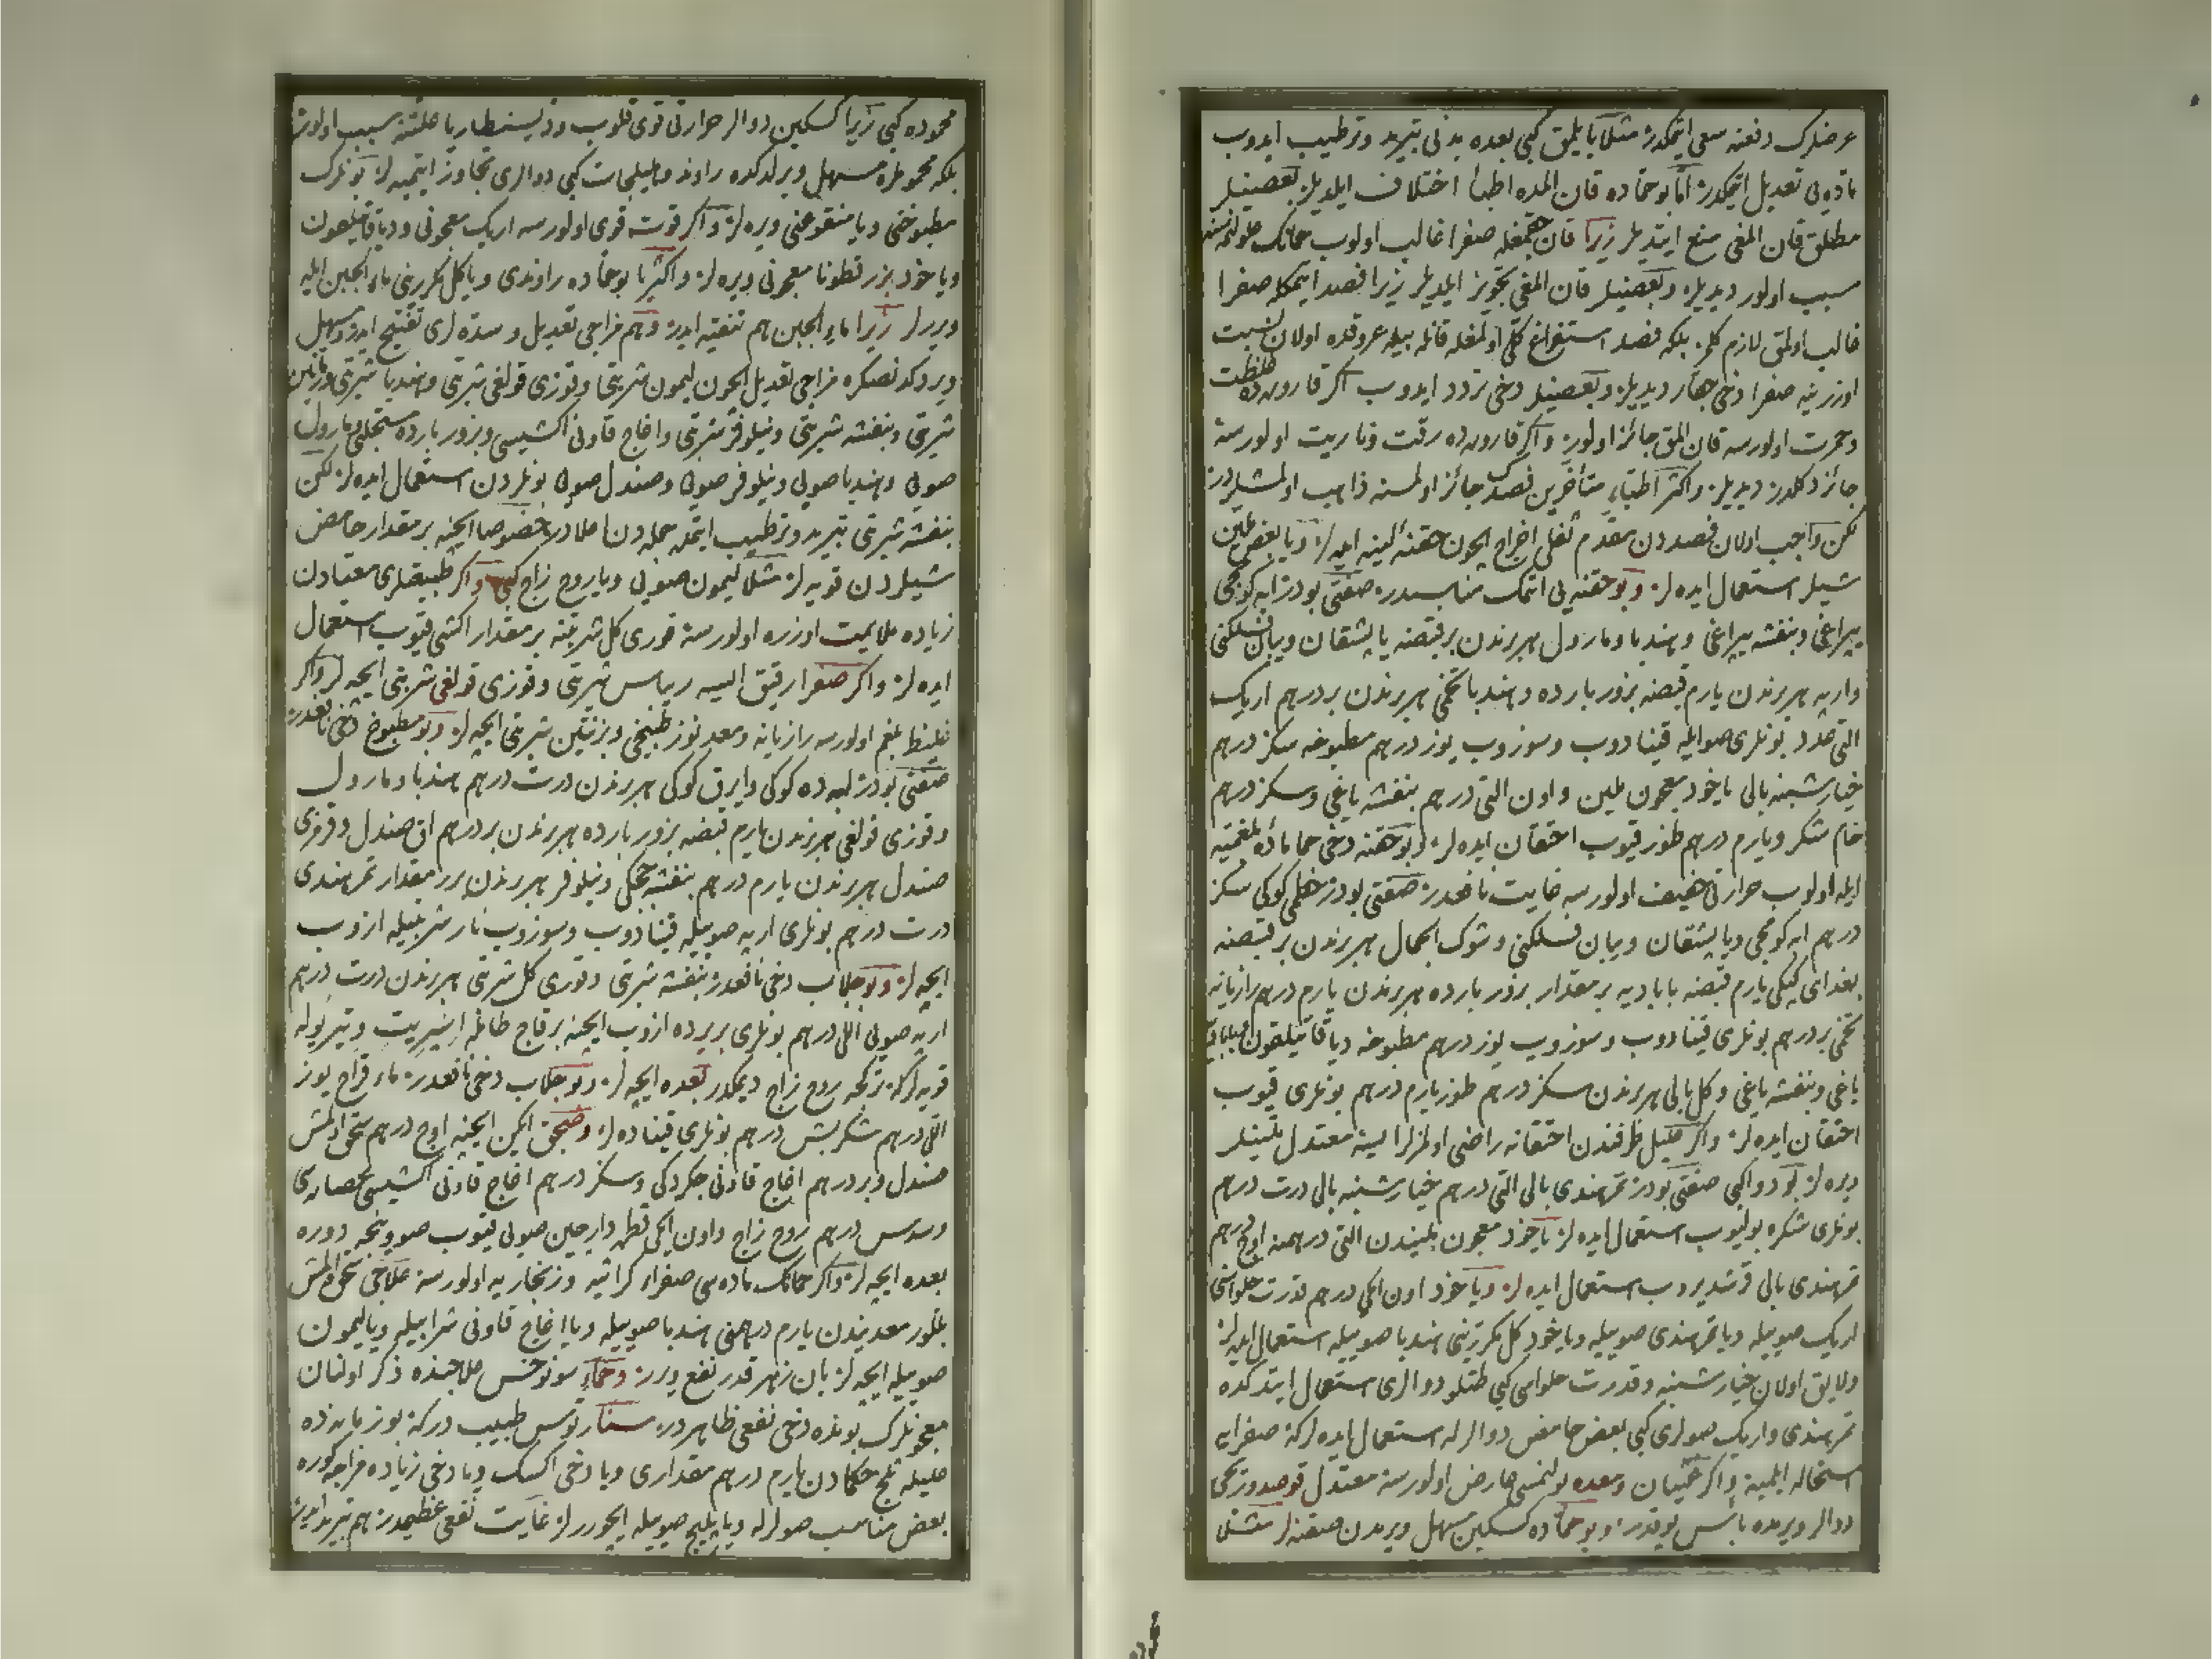 عرضلرك دفعنه سعی ایتمكدر مثلا بایلمق كبی بعده بدنی تبرید و ترطیب ایدوب
ماده‌یی تعدیل ایتمكدر اما بو حماده قان المده اطبا اختلاف ایلدیلر بعضیلر
مطلق قان المغی منع ایتدیلر زیرا قان چقمغله صفرا غالب اولوب حمانك
سبب اولور دیدیلر وبعضیلر قان المغی تجویز ایلدیلر زیرا فصد ایتمكله صفرا
غالب اولمق لازم كلمز بلكه فصد استفراغ كلی اولمغله قانله بیله عروقده اولان
اوزرینه صفرا دخی چقار دیدیلر وبعضیلر دخی تردد ایدوب اكر قاروره‌ده غلظت
وحمرت اولورسه قان المق جائز اولور واكر قاروره‌ده رقت وناریت اولورسه
جائز دكلدر دیدیلر واكثر اطباء متأخرین فصدك جائز اولمسنه ذاهب اولمشلردر
لكن واجب اولان فصددن مقدم ثفلی اخراج ایچون حقنهٔ لینه ایده‌لر ویا بعض ملین
شیلر استعمال ایده‌لر وبو حقنه‌یی اتمك مناسبدر صفتی بودر ابه كومجی
یپراغی وبنفشه یپراغی وهندبا ومارول هر برندن بر قبضه یا پشقان ویبان فسلكنی
وارپه هر برندن یارم قبضه بزور بارده وهندبا تخمی هر برندن بر درهم اریك
التی عدد بونلری صو ایله قینادوب وسوزوب یوز درهم مطبوخه سكز درهم
خیارشنبه بالی یاخود معجون ملین واون التی درهم بنفشه یاغی وسكز درهم
خام شكر ویارم درهم طوز قیوب احتقان ایده‌لر وبو حقنه دخی حما مادهٔ بلغمیه
ایله اولوب حرارتی خفیف اولورسه غایت نافعدر صفتی بودر خطمی كوكی سكز
درهم ابه كومجی ویا پشقان ویبان فسلكنی وشوك الجمال هر برندن بر قبضه
بغدای كپكی یارم قبضه بابادیه بر مقدار بزور بارده هر برندن یارم درهم رازیانه
تخمی بر درهم بونلری قینادوب وسوزوب یوز درهم مطبوخه دیاقاتیلقون
یاغی وبنفشه یاغی وكل بالی هر برندن سكز درهم طوز یارم درهم بونلری قیوب
احتقان ایده‌لر واكر علیل طرفندن احتقانه راضی اولمزلر ایسه معتدل ملینلر
ویره‌لر بو دوا كبی صفتی بودر تمرهندی بالی التی درهم خیارشنبه بالی درت درهم
بونلری شكره بولیوب استعمال ایده‌لر یاخود معجون ملیندن التی درهمنه اوچ درهم
تمرهندی بالی قرشدیروب استعمال ایده‌لر ویاخود اون ایكی درهم قدرت حلواسنی
اریك صوییله ویا تمرهندی صوییله ویاخود كل مكررینی هندبا صوییله استعمال ایده‌لر
ولایق اولان خیارشنبه وقدرت حلواسی كبی طتلو دوالری استعمال ایتدكده
تمرهندی واریك صولری كبی بعض حامض دوالرله استعمال ایده‌لر كه صفرایه
استحاله ایلمیه واكر غثیان ومعده بولنمسی عارض اولورسه معتدل قوصدوریجی
دوالر ویرمده بأس یوقدر وبو حماده كسكین مسهل ویرمدن صقنه‌لر مثلا
محموده كبی زیرا كسكین دوالر حرارتی قوی قلوب
بلكه محموملره مسهل ویرلدكده راوند وهلیلجات كبی دوالری تجاوز ایتمیه‌لر بونلرك
مطبوخنی ویا منقوعنی ویره‌لر واكر قوت قوی اولورسه اریك معجونی ودیاقاتیلقون
ویاخود بزرقطونا معجونی ویره‌لر واكثریا بو حماده راوندی ویا كل مكررینی ماء الجبن ایله
ویررلر زیرا ماء الجبن هم تنقیه ایدر وهم مزاجی تعدیل وسده‌لری تفتیح ایدر ومسهل
ویردكدنصكره مزاجی تعدیل ایچون لیمون شربتی وقوزی قولغی شربتی وهندبا شربتی
شربتی وبنفشه شربتی ونیلوفر شربتی واغاج قاونی اكشیسی وبزور بارده مستحلبی ومارول
صویی وهندبا صویی ونیلوفر صویی وصندل صویی بونلردن استعمال ایده‌لر لكن
بنفشه شربتی تبرید وترطیب ایتمه جمله‌دن اعلادر خصوصا ایچنه بر مقدار حامض
شیلردن قویه‌لر مثلا لیمون صویی ویا روح زاج كبی واكر طبیعتلری معتاددن
زیاده ملایمت اوزره اولورسه قوری كل شربتنه بر مقدار اكشی قیوب استعمال
ایده‌لر واكر صفرا رقیق ایسه ریباس شربتی وقوزی قولغی شربتی ایچه‌لر واكر
غلیظ بلغم اولورسه رازیانه ومعدنوز طبیخی وبزنتین شربتی ایچه‌لر وبو مطبوخ دخی نافعدر
صفتی بودر لبه‌ده كوكی وایرق كوكی هر برندن درت درهم هندبا ومارول
وقوزی قولغی هر برندن یارم قبضه بزور بارده هر برندن بر درهم اق صندل وقرمزی
صندل هر برندن یارم درهم بنفشه چچكی ونیلوفر هر برندن برر مقدار تمرهندی
درت درهم بونلری ارپه صوییله قینادوب وسوزوب نار شربتیله ازوب
ایچه‌لر وبو جلاب دخی نافعدر بنفشه شربتی وقوری كل شربتی هر برندن درت درهم
ارپه صویی اللی درهم بونلری بر یرده ازوب ایچنه بر قاچ طامله
قویه‌لر كه تركجه روح زاج دیمكدر بعده ایچه‌لر وبو جلاب دخی نافعدر ماء قراح یوز
اللی درهم شكر بش درهم بونلری قیناده‌لر وصیجق ایكن ایچنه اوچ درهم سحق اولنمش
صندل وبر درهم اغاج قاونی چكردكی وسكز درهم اغاج قاونی اكشیسی عصاره‌سی
وسدس درهم روح زاج واون ایكی قطره دارچین صویی قیوب صوویجه دوره
بعده ایچه‌لر واكر حمانك ماده‌سی صفراء كراثیه وزنجاریه اولورسه علاجی سحق اولنمش
بللور معدنیدن یارم درهمنی هندبا صوییله ویا اغاج قاونی شرابیله ویا لیمون
صوییله ایچه‌لر بان زهر قدر نفع ویرر وحماء سونوخس علاجنده ذكر اولنان
معجونلرك بونده دخی نفعی ظاهردر سنارتوس طبیب دركه بوزمانه‌ده
علیله ملح حكمادن یارم درهم مقداری ویا دخی اكسك ویا دخی زیاده مزاجه كوره
بعض مناسب صولرله ویا پلیج صوییله ایچوررلر غایت نفعی عظیمدر هم تبرید ایدر